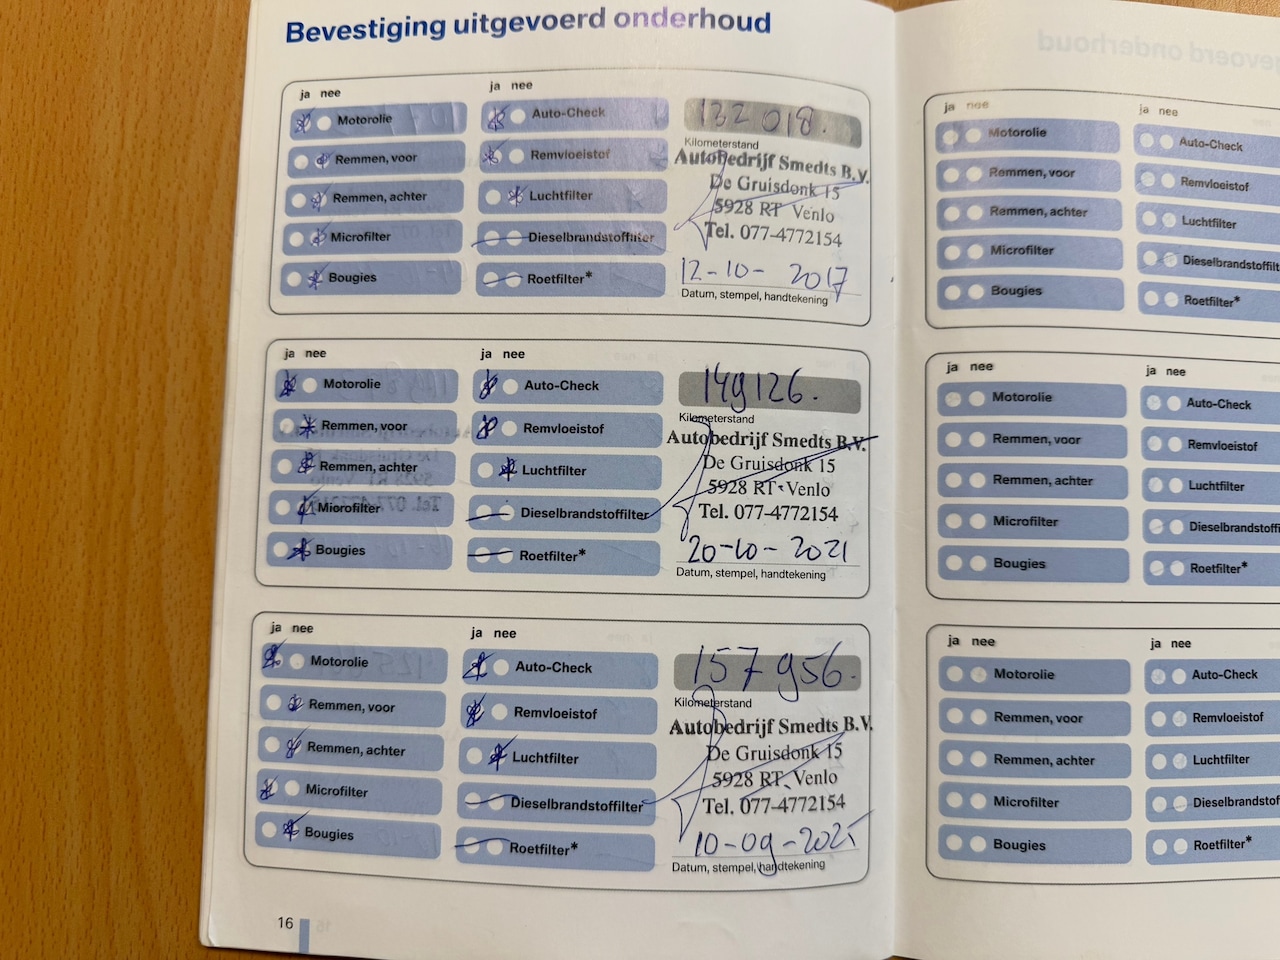 Bevestiging uitgevoerd onderhoud
ja nee
ja nee
Motorolie
Auto-Check
132 018.
Kilometerstand
Remmen, voor
Remvloeistof
Autobedrijf Smedts B.V.
De Gruisdonk 15
Remmen, achter
Luchtfilter
5928 RT Venlo
Tel. 077-4772154
Microfilter
Dieselbrandstoffilter
Bougies
Roetfilter*
12-10- 2017
Datum, stempel, handtekening
ja nee
ja nee
Motorolie
Auto-Check
149126.
Kilometerstand
Remmen, voor
Remvloeistof
Autobedrijf Smedts B.V.
De Gruisdonk 15
Remmen, achter
Luchtfilter
5928 RT Venlo
Tel. 077-4772154
Microfilter
Dieselbrandstoffilter
Bougies
Roetfilter*
20-10-2021
Datum, stempel, handtekening
ja nee
ja nee
Motorolie
Auto-Check
157956.
Kilometerstand
Remmen, voor
Remvloeistof
Autobedrijf Smedts B.V.
De Gruisdonk 15
Remmen, achter
Luchtfilter
5928 RT Venlo
Tel. 077-4772154
Microfilter
Dieselbrandstoffilter
Bougies
Roetfilter*
10-09-2025
Datum, stempel, handtekening
16
ja nee
ja nee
Motorolie
Auto-Check
Remmen, voor
Remvloeistof
Remmen, achter
Luchtfilter
Microfilter
Dieselbrandstoffilt
Bougies
Roetfilter*
ja nee
ja nee
Motorolie
Auto-Check
Remmen, voor
Remvloeistof
Remmen, achter
Luchtfilter
Microfilter
Dieselbrandstoffi
Bougies
Roetfilter*
ja nee
ja nee
Motorolie
Auto-Check
Remmen, voor
Remvloeistof
Remmen, achter
Luchtfilter
Microfilter
Dieselbrandstof
Bougies
Roetfilter*